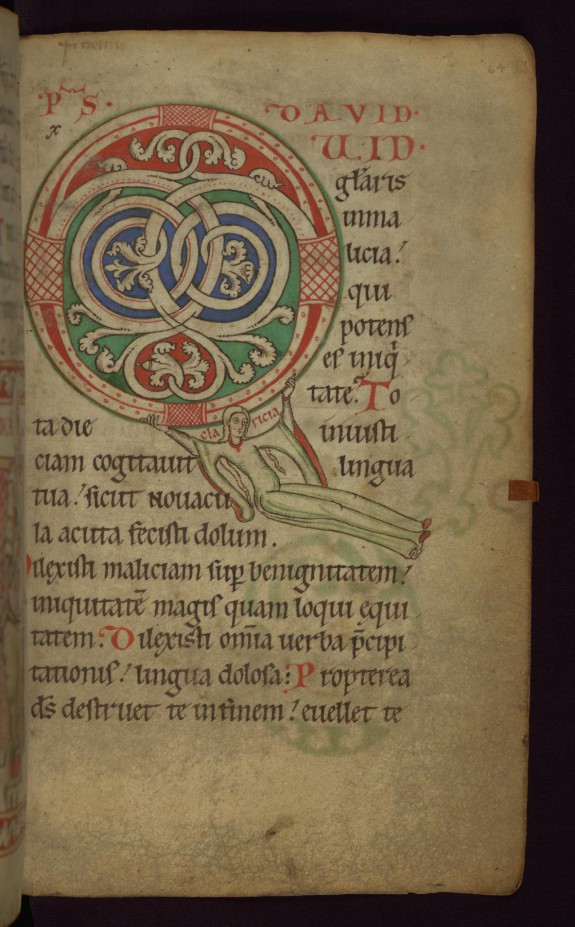 64
PS. DAVID.
x
QUID.
gl̄aris
in ma
licia!
qui
potens
es iniq̇
tate? To
ta die iniusti
ciam cogitauit lingua
tua! sicut nouacu
la acuta fecisti dolum.
Dilexisti maliciam sup̄ benignitatem!
iniquitatē magis quam loqui equi
tatem: Dilexisti om̄ia uerba p̄cipi
tationis! lingua dolosa: Propterea
dс̄ destruet te in finem! euellet te
cla ricia